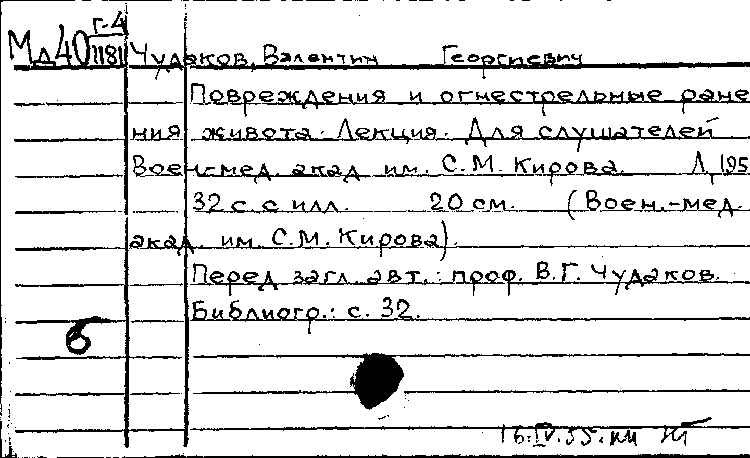 Мд40 Г-4
1181
Чудаков, Валентин Георгиевич
Повреждения и огнестрельные ране
ния живота. Лекция. Для слушателей
Воен.-мед. акад. им. С.М. Кирова. Л, 195
32 с. с илл. 20 см. (Воен.-мед.
акад. им. С.М. Кирова).
Перед загл. авт.: проф. В.Г. Чудаков.
Библиогр.: с. 32.
б
16.IV.55.